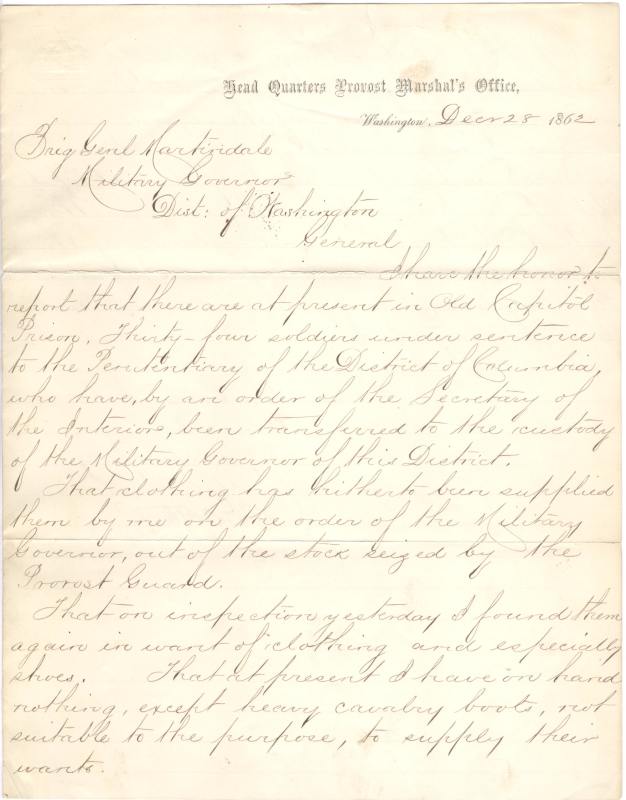 Head Quarters Provost Marshal's Office,
Washington, Decr 28 1862
Brig Genl Martindale
Military Governor
Dist: of Washington
General
I have the honor to
report that there are at present in Old Capitol
Prison, Thirty-four soldiers under sentence
to the Penitentiary of the District of Columbia,
who have, by an order of the Secretary of
the Interior, been transferred to the custody
of the Military Governor of this District.
That clothing has hitherto been supplied
them by me on the order of the Military
Governor, out of the stock seized by the
Provost Guard.
That on inspection yesterday I found them
again in want of clothing and especially
shoes. That at present I have on hand
nothing, except heavy cavalry boots, not
suitable to the purpose, to supply their
wants.